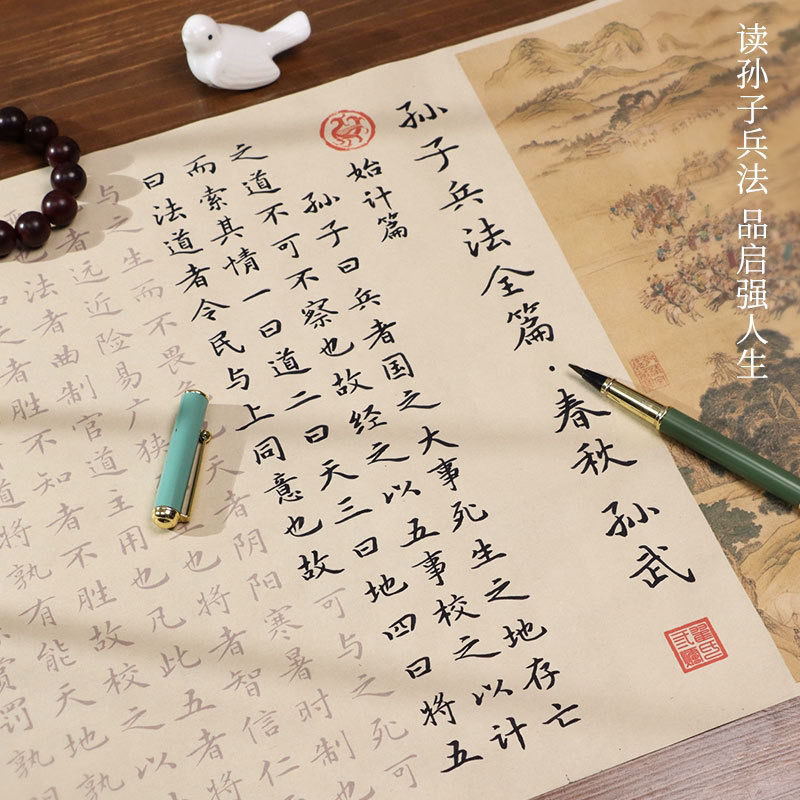 读孙子兵法 品启强人生
孙子兵法全篇·春秋 孙武
始计篇
孙子曰兵者国之大事死生之地存亡
之道不可不察也故经之以五事校之以计
而索其情一曰道二曰天三曰地四曰将五
曰法道者令民与上同意也故可与之死可
与之生而不畏天者阴阳寒暑时制也
者远近险易广狭也将者智信仁
法者曲制官道主用也凡此五者将
之者胜不知者不胜故校之以
道将孰有能天地孰
赏罚孰